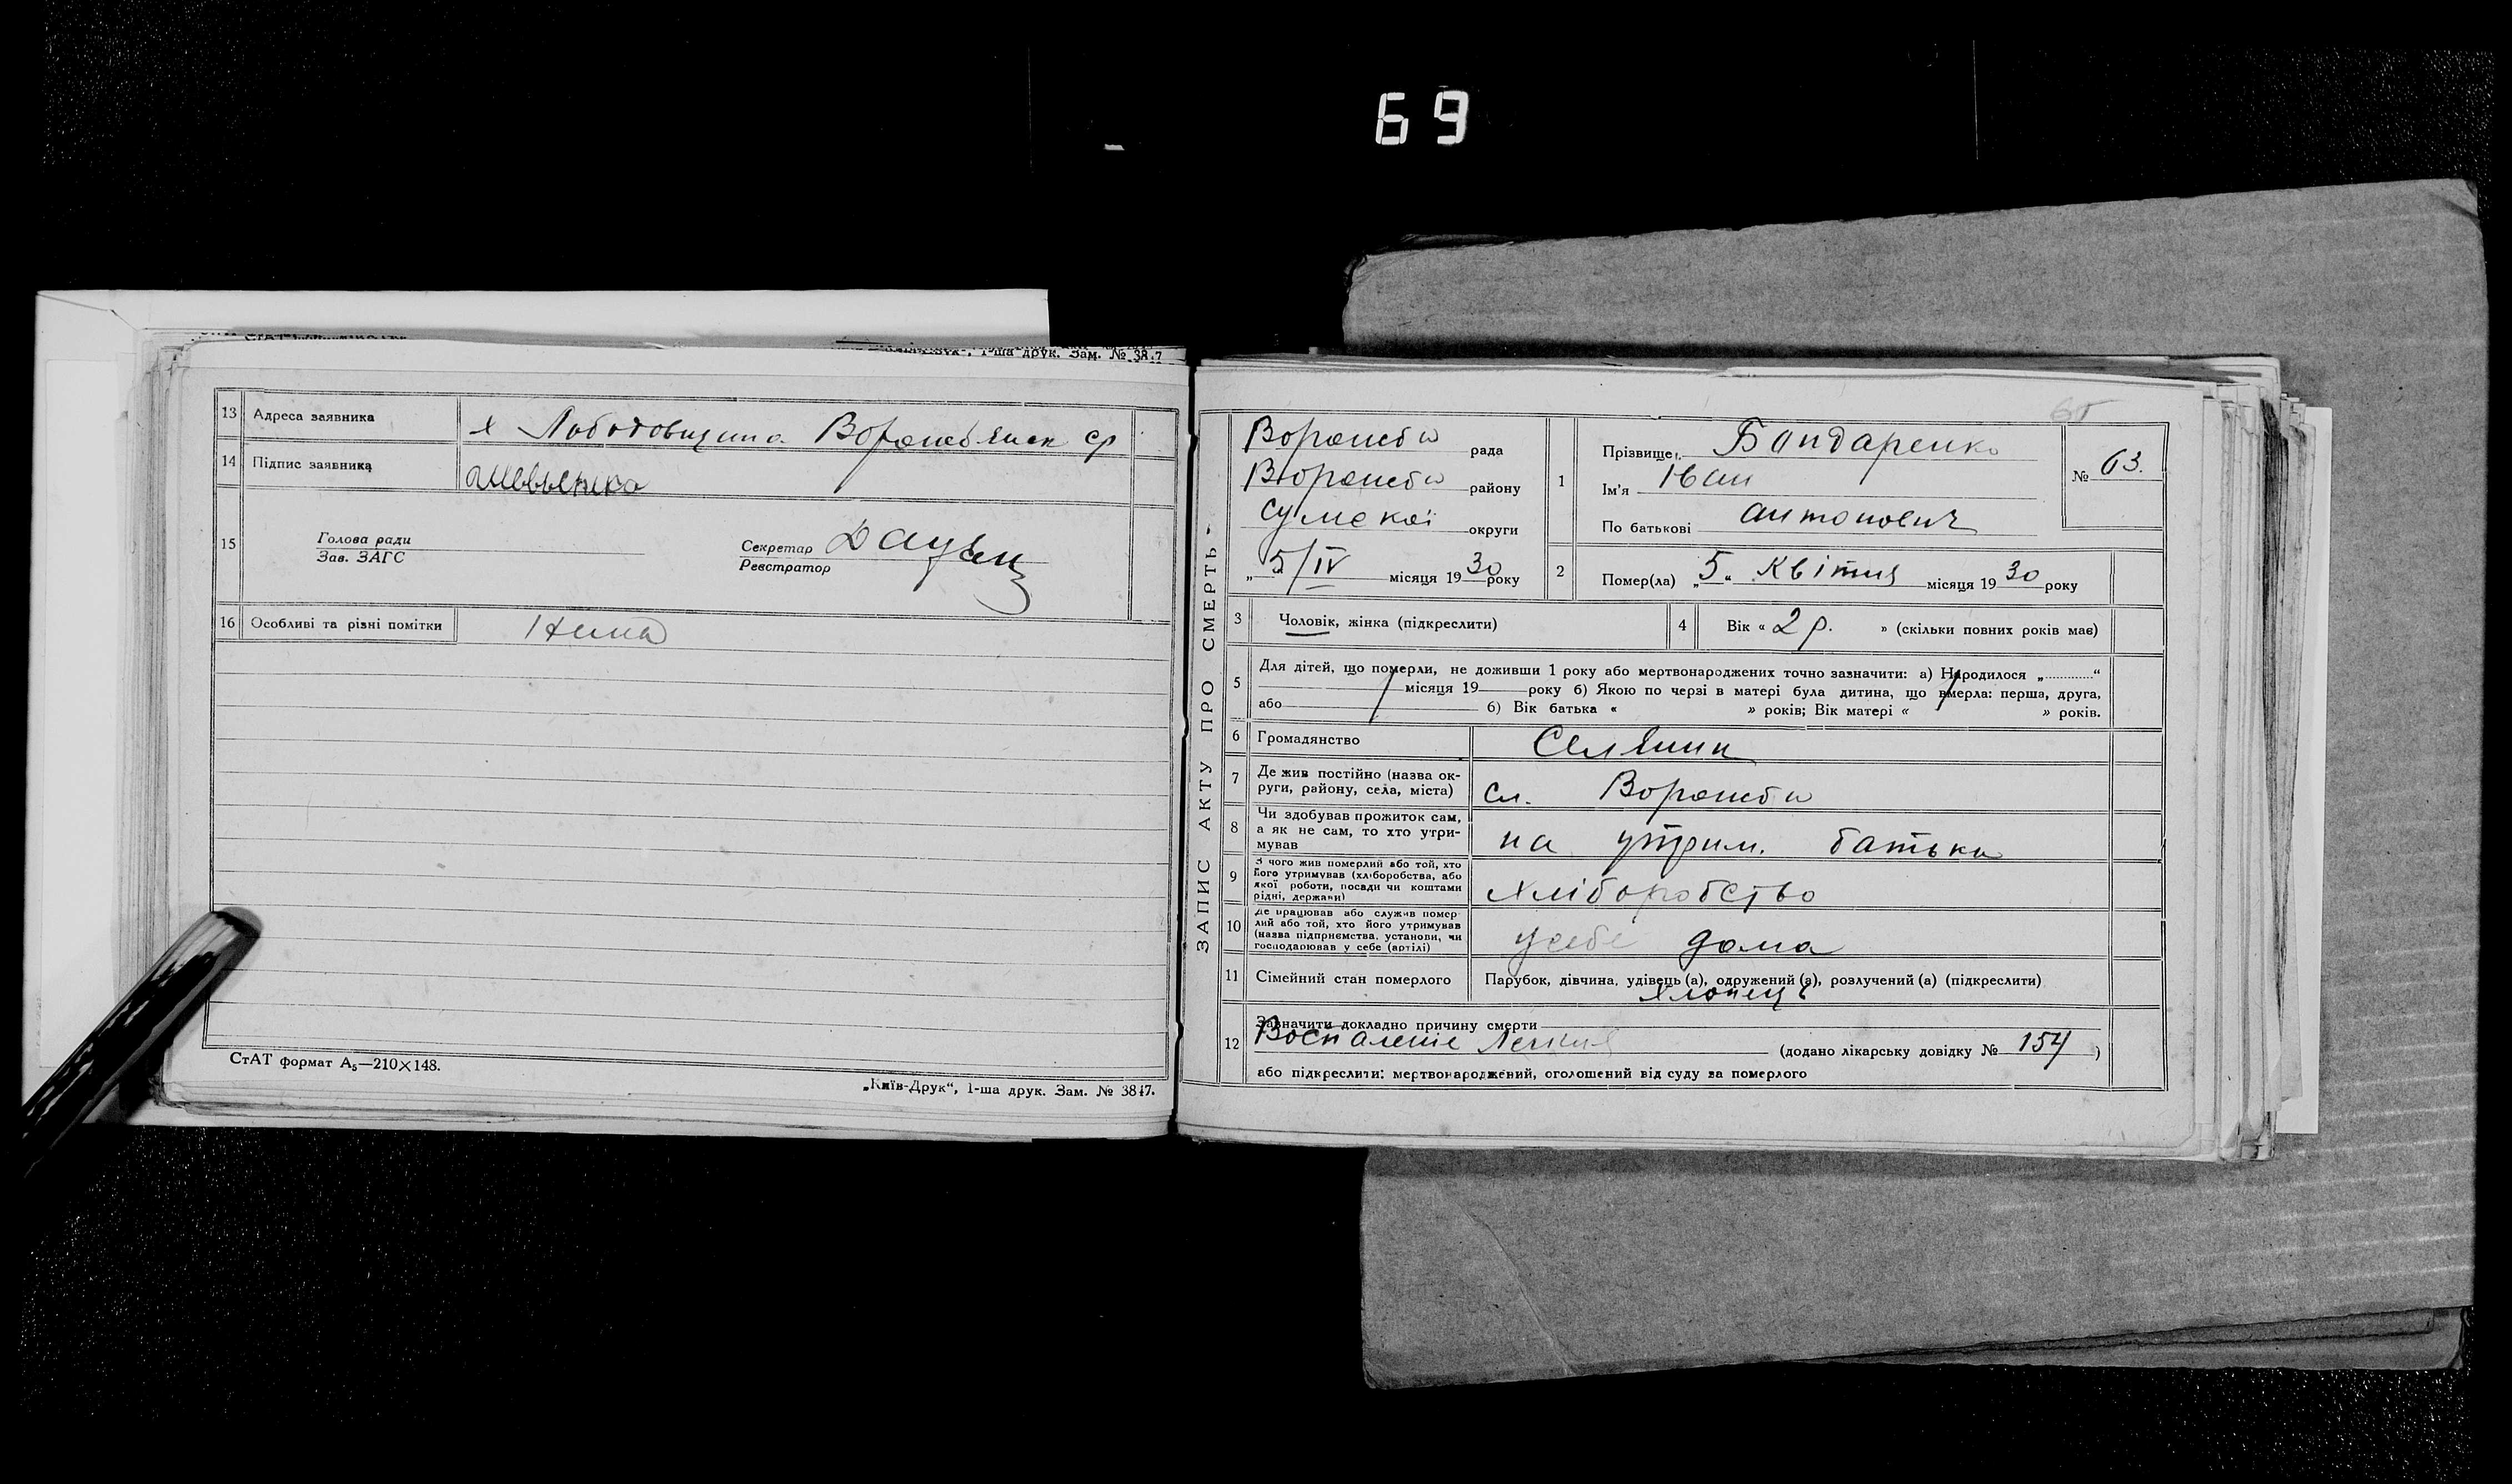 69
1-ша друк. Зам. № 38.7
13 Адреса заявника х Лободовщина Ворожбянск ср
14 Підпис заявника
15 Голова ради
Зав. ЗАГС
Секретар
Реєстратор
16 Особливі та різні помітки Нима
СтАТ формат А₅—210×148.
„Київ-Друк“, 1-ша друк. Зам. № 3847.
65
ЗАПИС АКТУ ПРО СМЕРТЬ
Ворожба рада
Ворожба району
Сумскої округи
„5/IV місяця 1930 року
1 Прізвище Бондаренко
Ім'я Іван
По батькові Антонович
№ 63.
2 Помер(ла) „5“ Квітня місяця 1930 року
3 Чоловік, жінка (підкреслити)
4 Вік « 2 р. » (скільки повних років має)
5 Для дітей, що померли, не доживши 1 року або мертвонароджених точно зазначити: а) Народилося „ “
місяця 19 року б) Якою по черзі в матері була дитина, що вмерла: перша, друга,
або 6) Вік батька « » років; Вік матері « » років.
6 Громадянство Селянин
7 Де жив постійно (назва ок-
руги, району, села, міста) сл. Ворожба
8 Чи здобував прожиток сам,
а як не сам, то хто утри-
мував на утрим. батька
9 З чого жив померлий або той, хто
його утримував (хліборобства, або
якої роботи, посади чи коштами
рідні, держави) Хліборобство
10 Де працював або служив помер
лий або той, хто його утримував
(назва підприємства, установи, чи
господарював у себе (артілі) у себе дома
11 Сімейний стан померлого Парубок, дівчина, удівець (а), одружений (а), розлучений (а) (підкреслити)
хлопець
12 Зазначити докладно причину смерти
Воспаленіе Легких (додано лікарську довідку № 154)
або підкреслити: мертвонароджений, оголошений від суду за померлого